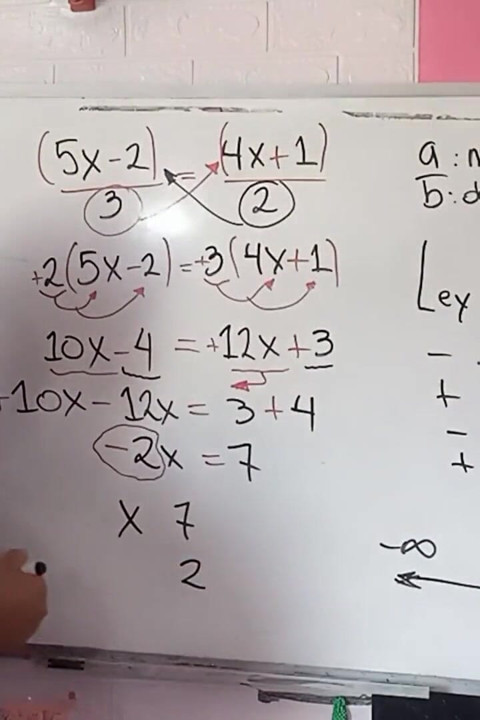 (5x-2) = (4x+1)
3 2
+2(5x-2)=+3(4x+1)
10x-4 = +12x+3
+10x-12x= 3+4
-2x =7
x 7
2
a:
b:
Ley
-
+
-
+
-∞